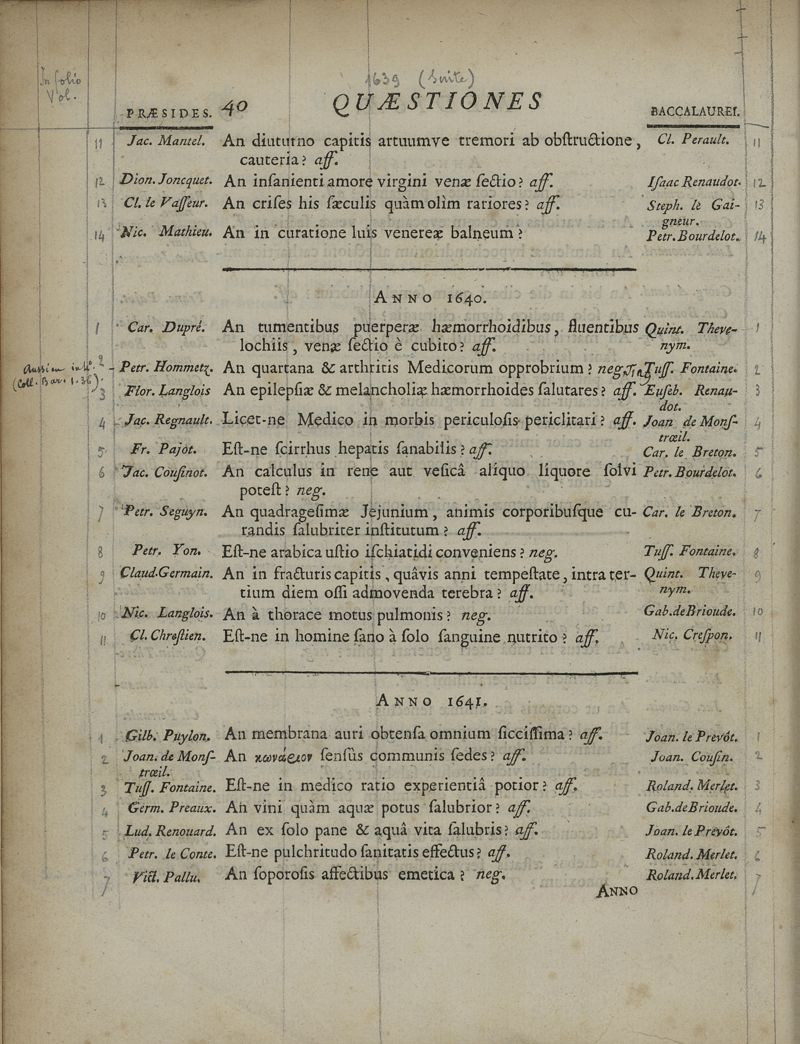 In folio
Vol.
1639 (Suite)
PRÆSIDES. 40 QUÆSTIONES BACCALAUREI.
11 Jac. Mantel. An diuturno capitis artuumve tremori ab obſtructione, Cl. Perault. 11
cauteria? aff.
12 Dion. Joncquet. An inſanienti amore virgini venæ ſectio? aff. Iſaac Renaudot. 12
13 Cl. le Vaſſeur. An criſes his ſæculis quàm olim rariores? aff. Steph. le Gai- 13
gneur.
14 Nic. Mathieu. An in curatione luis venereæ balneum? Petr. Bourdelot. 14
ANNO 1640.
1 Car. Dupré. An tumentibus puerperæ hæmorrhoidibus, fluentibus Quint. Theve- 1
lochiis, venæ ſectio è cubito? aff. nym.
2 Petr. Hommetz. An quartana & arthritis Medicorum opprobrium? neg. Tuſſ. Fontaine. 2
Aussi in 4º.
(Coll. Bar. 1.36)
3 Flor. Langlois An epilepſiæ & melancholiæ hæmorrhoides ſalutares? aff. Euſeb. Renau- 3
dot.
4 Jac. Regnault. Licet-ne Medico in morbis periculoſis periclitari? aff. Joan de Monſ- 4
trœil.
5 Fr. Pajot. Eſt-ne ſcirrhus hepatis ſanabilis? aff. Car. le Breton. 5
6 Jac. Couſinot. An calculus in rene aut veſicâ aliquo liquore ſolvi Petr. Bourdelot. 6
poteſt? neg.
7 Petr. Seguyn. An quadrageſimæ Jejunium, animis corporibuſque cu- Car. le Breton. 7
randis ſalubriter inſtitutum? aff.
8 Petr. Yon. Eſt-ne arabica uſtio iſchiatidi conveniens? neg. Tuſſ. Fontaine. 8
9 Claud. Germain. An in fracturis capitis, quâvis anni tempeſtate, intra ter- Quint. Theve- 9
tium diem oſſi admovenda terebra? aff. nym.
10 Nic. Langlois. An à thorace motus pulmonis? neg. Gab. de Brioude. 10
11 Cl. Chreſtien. Eſt-ne in homine ſano à ſolo ſanguine nutrito? aff. Nic. Creſpon. 11
ANNO 1641.
1 Gilb. Puylon. An membrana auri obtenſa omnium ſicciſſima? aff. Joan. le Prevôt. 1
2 Joan. de Monſ- An κωνάριον ſenſûs communis ſedes? aff. Joan. Couſin. 2
trœil.
3 Tuſſ. Fontaine. Eſt-ne in medico ratio experientiâ potior? aff. Roland. Merlet. 3
4 Germ. Preaux. An vini quàm aquæ potus ſalubrior? aff. Gab. de Brioude. 4
5 Lud. Renouard. An ex ſolo pane & aquâ vita ſalubris? aff. Joan. le Prevôt. 5
6 Petr. le Conte. Eſt-ne pulchritudo ſanitatis effectus? aff. Roland. Merlet. 6
7 Vict. Pallu. An ſoporoſis affectibus emetica? neg. Roland. Merlet. 7
ANNO